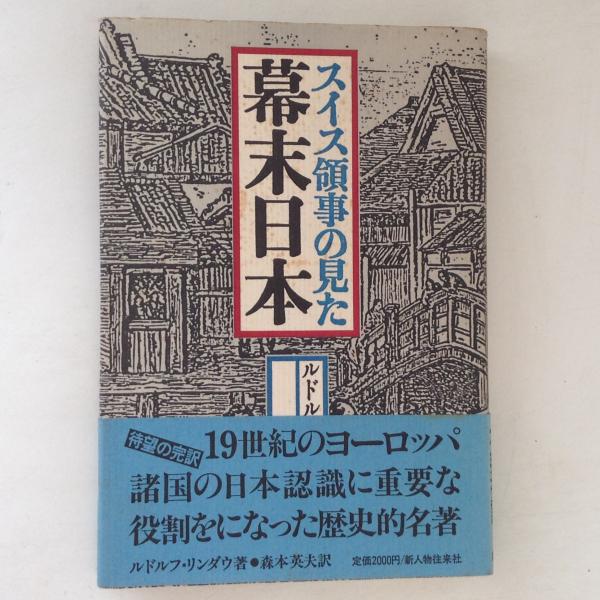 スイス領事の見た
幕末日本
ルドル
待望の完訳
19世紀のヨーロッパ
諸国の日本認識に重要な
役割をになった歴史的名著
ルドルフ・リンダウ著●森本英夫訳
定価2000円/新人物往来社